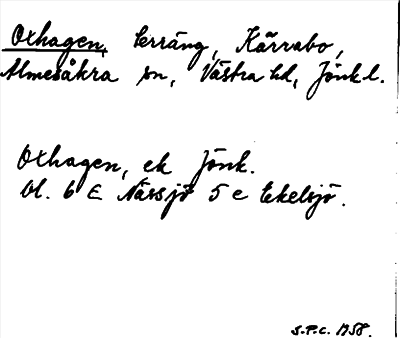 Oxhagen, terräng, Kärrabo,
Almesåkra sn, Västra hd, Jönk.l.
Oxhagen, ek Jönk.
bl. 6 E Nässjö 5 e Ekelsjö.
S.P.C. 1958.